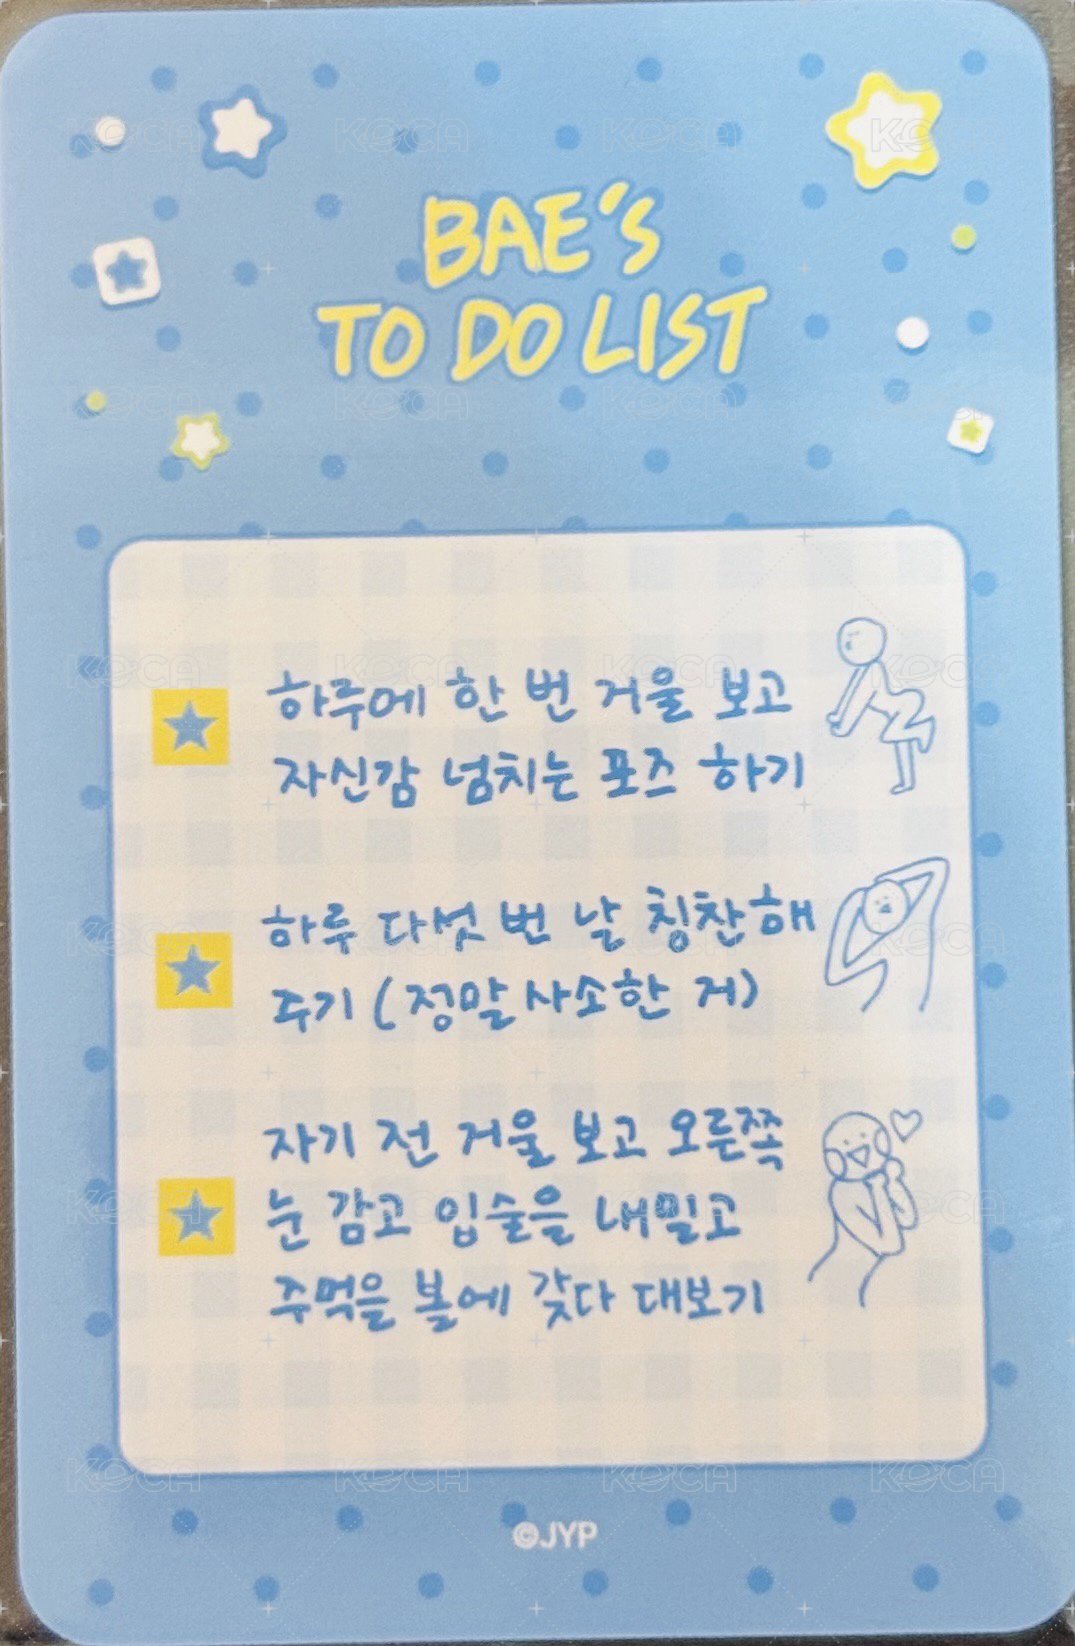 BAE's
TO DO LIST
하루에 한 번 거울 보고
자신감 넘치는 포즈 하기
하루 다섯 번 날 칭찬해
주기 (정말 사소한 거)
자기 전 거울 보고 오른쪽
눈 감고 입술을 내밀고
주먹을 볼에 갖다 대보기
©JYP
KOCA